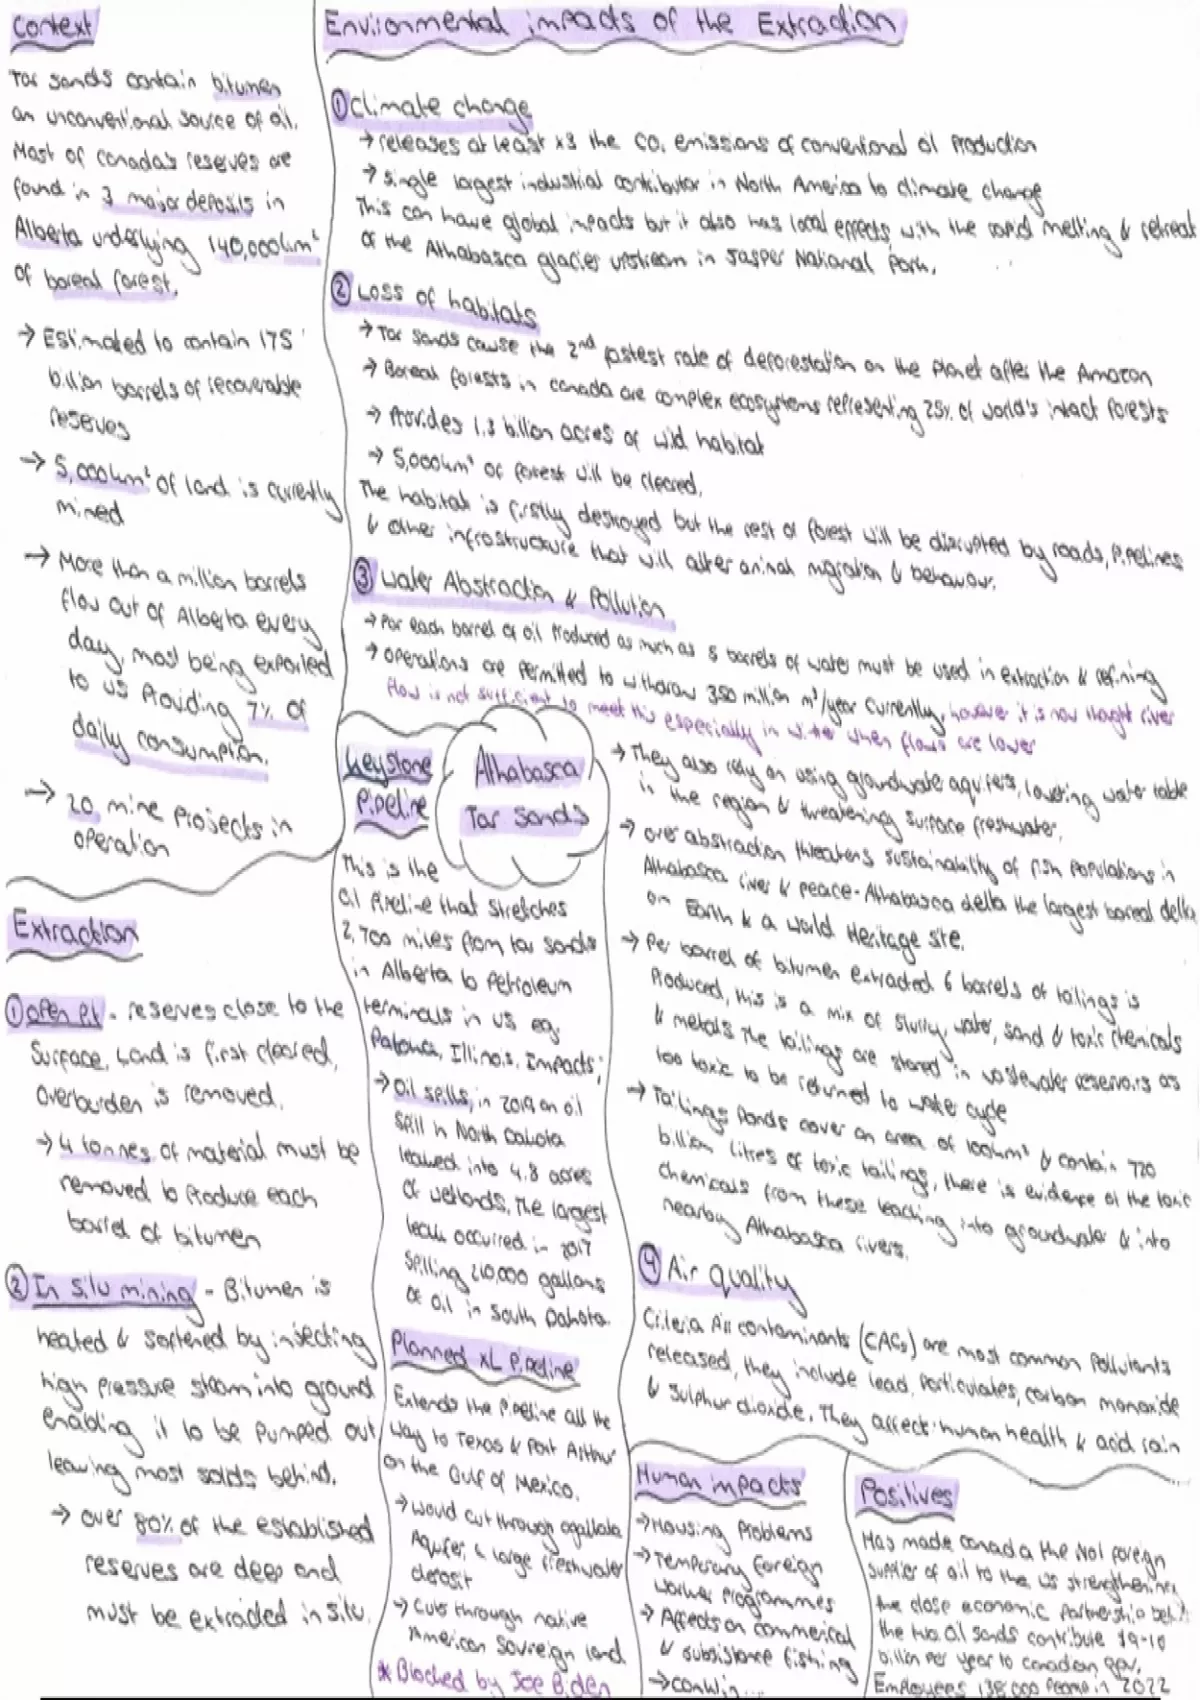 Context
Tar sands contain bitumen
an unconventional source of oil.
Most of Canada's reserves are
found in 3 major deposits in
Alberta underlying 140,000km²
of boreal forest.
→ Estimated to contain 175
billion barrels of recoverable
reserves
→ 5,000km² of land is currently
mined
→ More than a million barrels
flow out of Alberta every
day, most being exported
to US Providing 7% of
daily consumption.
→ 20 mine Projects in
operation
Extraction
① Open Pit - reserves close to the
Surface, Land is first cleared,
overburden is removed.
→ 4 tonnes of material must be
removed to Produce each
barrel of bitumen
② In Situ mining - Bitumen is
heated & softened by injecting
high Pressure steam into ground
enabling it to be Pumped out
leaving most solids behind.
→ over 80% of the established
reserves are deep and
must be extracted in situ.
Environmental impacts of the Extraction
① Climate change
→ releases at least x3 the CO₂ emissions of conventional oil Production
→ Single largest industrial contributor in North America to climate change
This can have global impacts but it also has local effects with the rapid melting & retreat
of the Athabasca glacier upstream in Jasper National Park.
② Loss of habitats
→ Tar Sands cause the 2nd fastest rate of deforestation on the Planet after the Amazon
→ Boreal forests in Canada are complex ecosystems representing 25% of world's intact forests
→ Provides 1.3 billion acres of wild habitat
→ 5,000km² of forest will be cleared.
The habitat is firstly destroyed but the rest of forest will be disrupted by roads, Pipelines
& other infrastructure that will alter animal migration & behaviour.
③ Water Abstraction & Pollution
→ For each barrel of oil Produced as much as 5 barrels of water must be used in extraction & refining
→ operations are Permitted to withdraw 350 million m³/year currently, however it is now thought river
flow is not sufficient to meet this especially in winter when flows are lower
→ They also rely on using groundwater aquifers, lowering water table
in the region & threatening surface freshwater.
→ over abstraction threatens sustainability of fish populations in
Athabasca river & peace-Athabasca delta the largest boreal delta
on Earth & a World Heritage site.
→ Per barrel of bitumen extracted 6 barrels of tailings is
Produced, this is a mix of slurry, water, sand & toxic chemicals
& metals The tailings are stored in wastewater reservoirs as
too toxic to be returned to water cycle
→ Tailings Ponds cover an area of 100km² & contain 720
billion Litres of toxic tailings, there is evidence of the toxic
chemicals from these leaching into groundwater & into
nearby Athabasca rivers.
④ Air quality
Criteria Air contaminants (CACs) are most common Pollutants
released, they include lead, Particulates, carbon monoxide
& sulphur dioxide. They affect human health & acid rain
Athabasca
Tar Sands
Keystone
Pipeline
This is the
oil Pipeline that stretches
2,700 miles from tar sands
in Alberta to Petroleum
terminals in US eg.
Patoka, Illinois. Impacts;
→ Oil spills, in 2019 an oil
Spill in North Dakota
leaked into 4.8 acres
of wetlands, The largest
leak occurred in 2017
Spilling 210,000 gallons
of oil in South Dakota.
Planned XL Pipeline
Extends the Pipeline all the
way to Texas & Port Arthur
on the Gulf of Mexico.
→ Would cut through ogallala
Aquifer, a large freshwater
deposit
→ Cuts through native
American Sovreign land
* Blocked by Joe Biden
Human impacts
→ Housing Problems
→ Temporary foreign
worker Programmes
→ Affects on commerical
& subsistance fishing
Positives
Has made canada the No1 foreign
supplier of oil to the US strengthening
the close economic Partnership
the two Oil sands contribute $9-10
billion Per year to canadian gov.
Employees 138,000 People in 2022